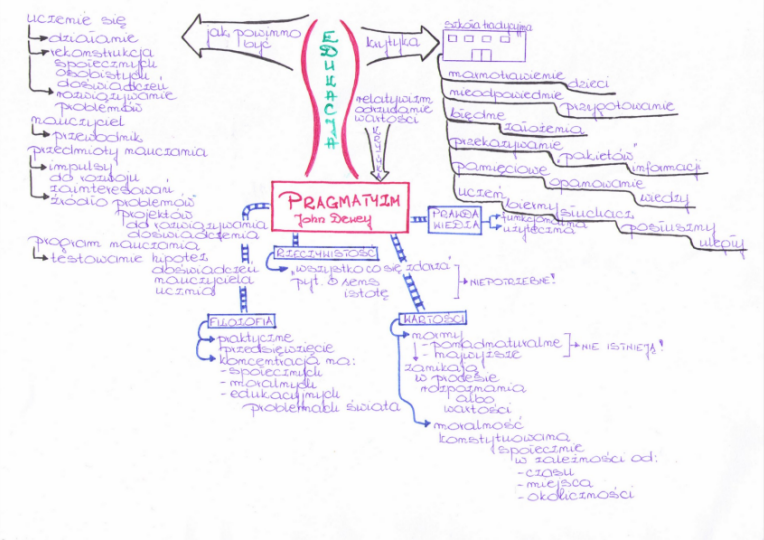 uczenie się
działanie
rekonstrukcja
społecznych
osobistych
doświadczeń
rozwiązywanie
problemów
nauczyciel
przewodnik
przedmioty nauczania
impulsy
do rozwoju
zainteresowań
źródło problemów
projektów
do rozwiązywania
doświadczenia
program nauczania
testowanie hipotez
doświadczeń
nauczyciela
ucznia
jak powinno
być
EDUKACJA
krytyka
szkoła tradycyjna
marnotrawienie dzieci
nieodpowiednie przygotowanie
błędne założenia
przekazywanie "pakietów" informacji
pamięciowe opanowanie wiedzy
uczeń bierny słuchacz posłuszny uległy
relatywizm
odrzucanie
wartości
krytyka
PRAGMATYZM
John Dewey
PRAWDA
WIEDZA
funkcjonalna
użyteczna
RZECZYWISTOŚĆ
"wszystko co się zdarza"
pyt. o sens
istotę
NIEPOTRZEBNE!
FILOZOFIA
praktyczne
przedsięwzięcie
koncentracja na:
- społecznych
- moralnych
- edukacyjnych
problemach świata
WARTOŚCI
normy
- ponadnaturalne
- najwyższe
NIE ISTNIEJĄ!
zanikają
w procesie
rozpoznania
albo
wartości
moralność
konstytuowana
społecznie
w zależności od:
- czasu
- miejsca
- okoliczności